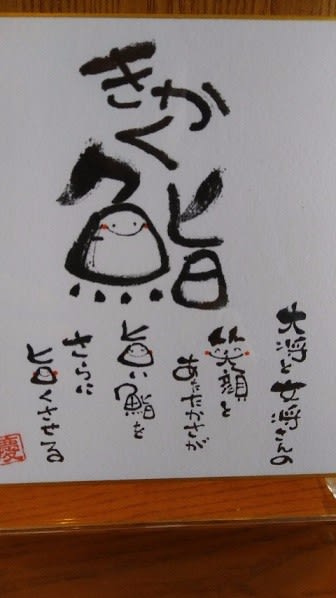 きかく
鮨
大将と女将さんの
笑顔と
あたたかさが
旨い鮨を
さらに
旨くさせる
慶